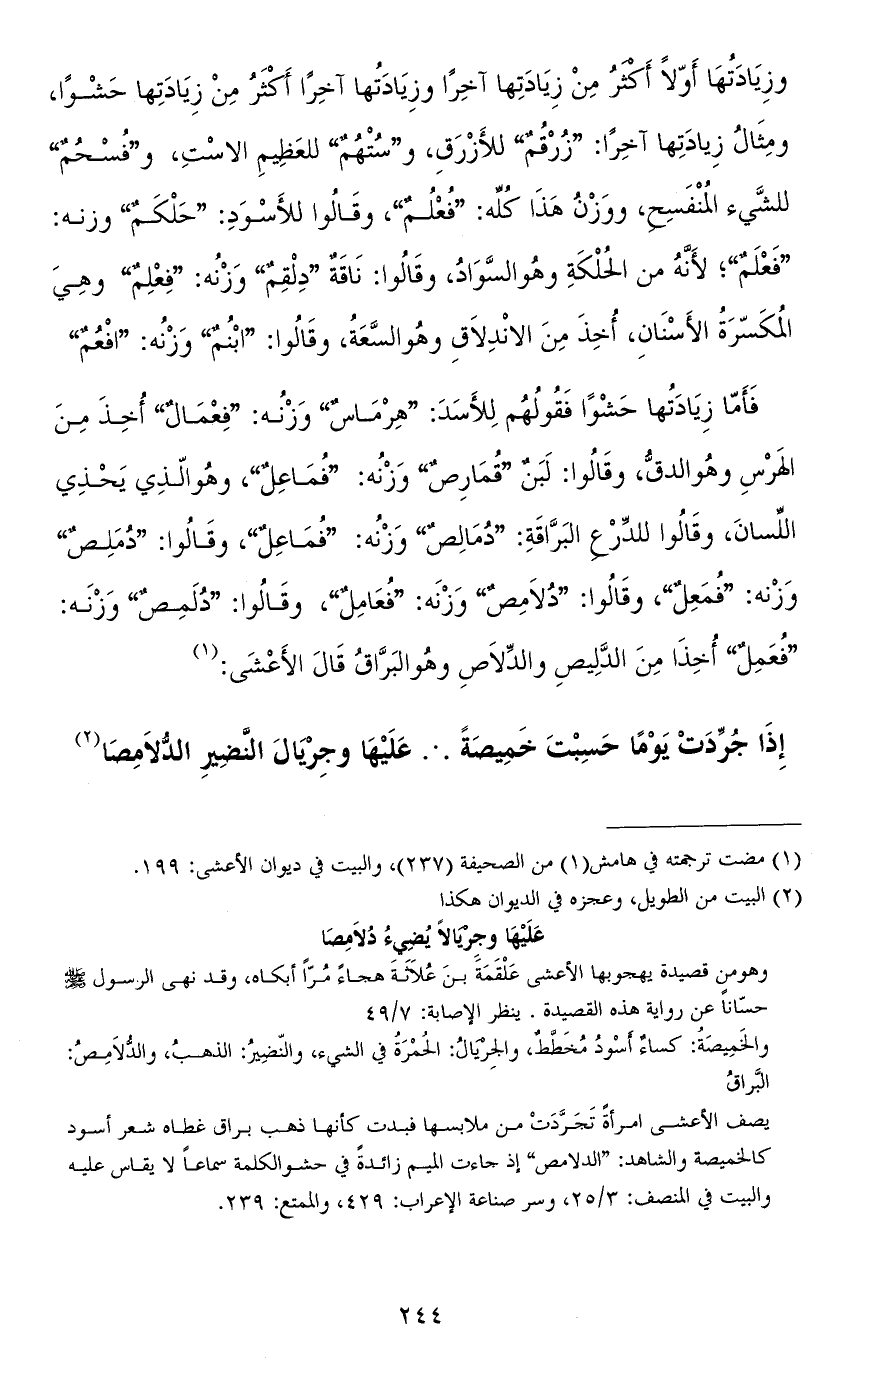 وزِيَادَتُهَا أَوّلاً أَكْثَرُ مِنْ زِيَادَتِها آخِرًا وزِيَادَتُها آخِرًا أَكْثَرُ مِنْ زِيَادَتِها حَشْوًا،
ومِثَالُ زِيادَتِها آخِرًا: ”زُرْقُمٌ“ للأَزْرَقِ، و”سُتْهُمٌ“ للعَظِيمِ الاسْتِ، و”فُسْحُمٌ“
للشَّيء المُنْفَسِحِ، ووَزْنُ هَذَا كُلّه: ”فُعْلُمٌ“، وقَالُوا للأَسْوَدِ: ”حَلْكَمٌ“ وزنه:
”فَعْلَمٌ“؛ لأَنَّهُ من الحُلْكَةِ وهُو السَّوَادُ، وقَالُوا: نَاقَةٌ ”دِلْقِمٌ“ وَزْنُه: ”فِعْلِمٌ“ وهِيَ
المُكَسّرَةُ الأَسْنَانِ، أُخِذَ مِنَ الانْدِلاَقِ وهُو السَّعَةُ، وقَالُوا: ”ابْنُمٌ“ وَزْنُه: ”افْعُمٌ“
فَأَمّا زِيَادَتُها حَشْوًا فَقُولُهُم لِلأَسَدَ: ”هِرْمَاسٌ“ وَزْنُه: ”فِعْمَالٌ“ أُخِذَ مِنَ
الهَرْسِ وهُو الدقُّ، وقَالُوا: لَبَنٌ ”قُمَارِصٌ“ وَزْنُه: ”فُمَاعِلٌ“، وهُو الّذِي يَحْذِي
اللِّسانَ، وقَالُوا للدِّرْعِ البَرَّاقَةِ: ”دُمَالِصٌ“ وَزْنُه: ”فُمَاعِلٌ“، وقَالُوا: ”دُمَلِصٌ“
وَزْنه: ”فُمَعِلٌ“، وقَالُوا: ”دُلاَمِصٌ“ وَزْنَه: ”فُعَامِلٌ“، وقَالُوا: ”دُلَمِصٌ“ وَزْنَه:
”فُعَمِلٌ“ أُخِذَا مِنَ الدَّلِيصِ والدِّلاَصِ وهُو البَرَّاقُ قَالَ الأَعْشَى:(١)
إِذَا جُرِّدَتْ يَوْمًا حَسِبْتَ خَمِيصَةً .٠. عَلَيْهَا وجِرْيَالَ النَّضِيرِ الدُّلاَمِصَا(٢)
(١) مضت ترجمته في هامش(١) من الصحيفة (٢٣٧)، والبيت في ديوان الأعشى: ١٩٩.
(٢) البيت من الطويل، وعجزه في الديوان هكذا
عَلَيْهَا وجِرْيَالاً يُضِيءُ دُلاَمِصَا
وهو من قصيدة يهجو بها الأعشى عَلْقَمَةَ بنَ عُلاَثَةَ هجاءً مُرّاً أبكاه، وقد نهى الرسول ﷺ
حسّاناً عن رواية هذه القصيدة . ينظر الإصابة: ٤٩/٧
والخَمِيصَةُ: كساءٌ أَسْودُ مُخَطَّطٌ، والجِرْيَالُ: الحُمْرَةُ في الشيء، والنّضِيرُ: الذهبُ، والدُّلاَمِصُ:
البَّراقُ
يصف الأعشى امرأةً تَجَرَّدَتْ من ملابسها فبدت كأنها ذهب براق غطاه شعر أسود
كالخميصة والشاهد: ”الدلامص“ إذ جاءت الميم زائدةً في حشو الكلمة سماعاً لا يقاس عليه
والبيت في المنصف: ٢٥/٣، وسر صناعة الإعراب: ٤٢٩، والممتع: ٢٣٩.
٢٤٤